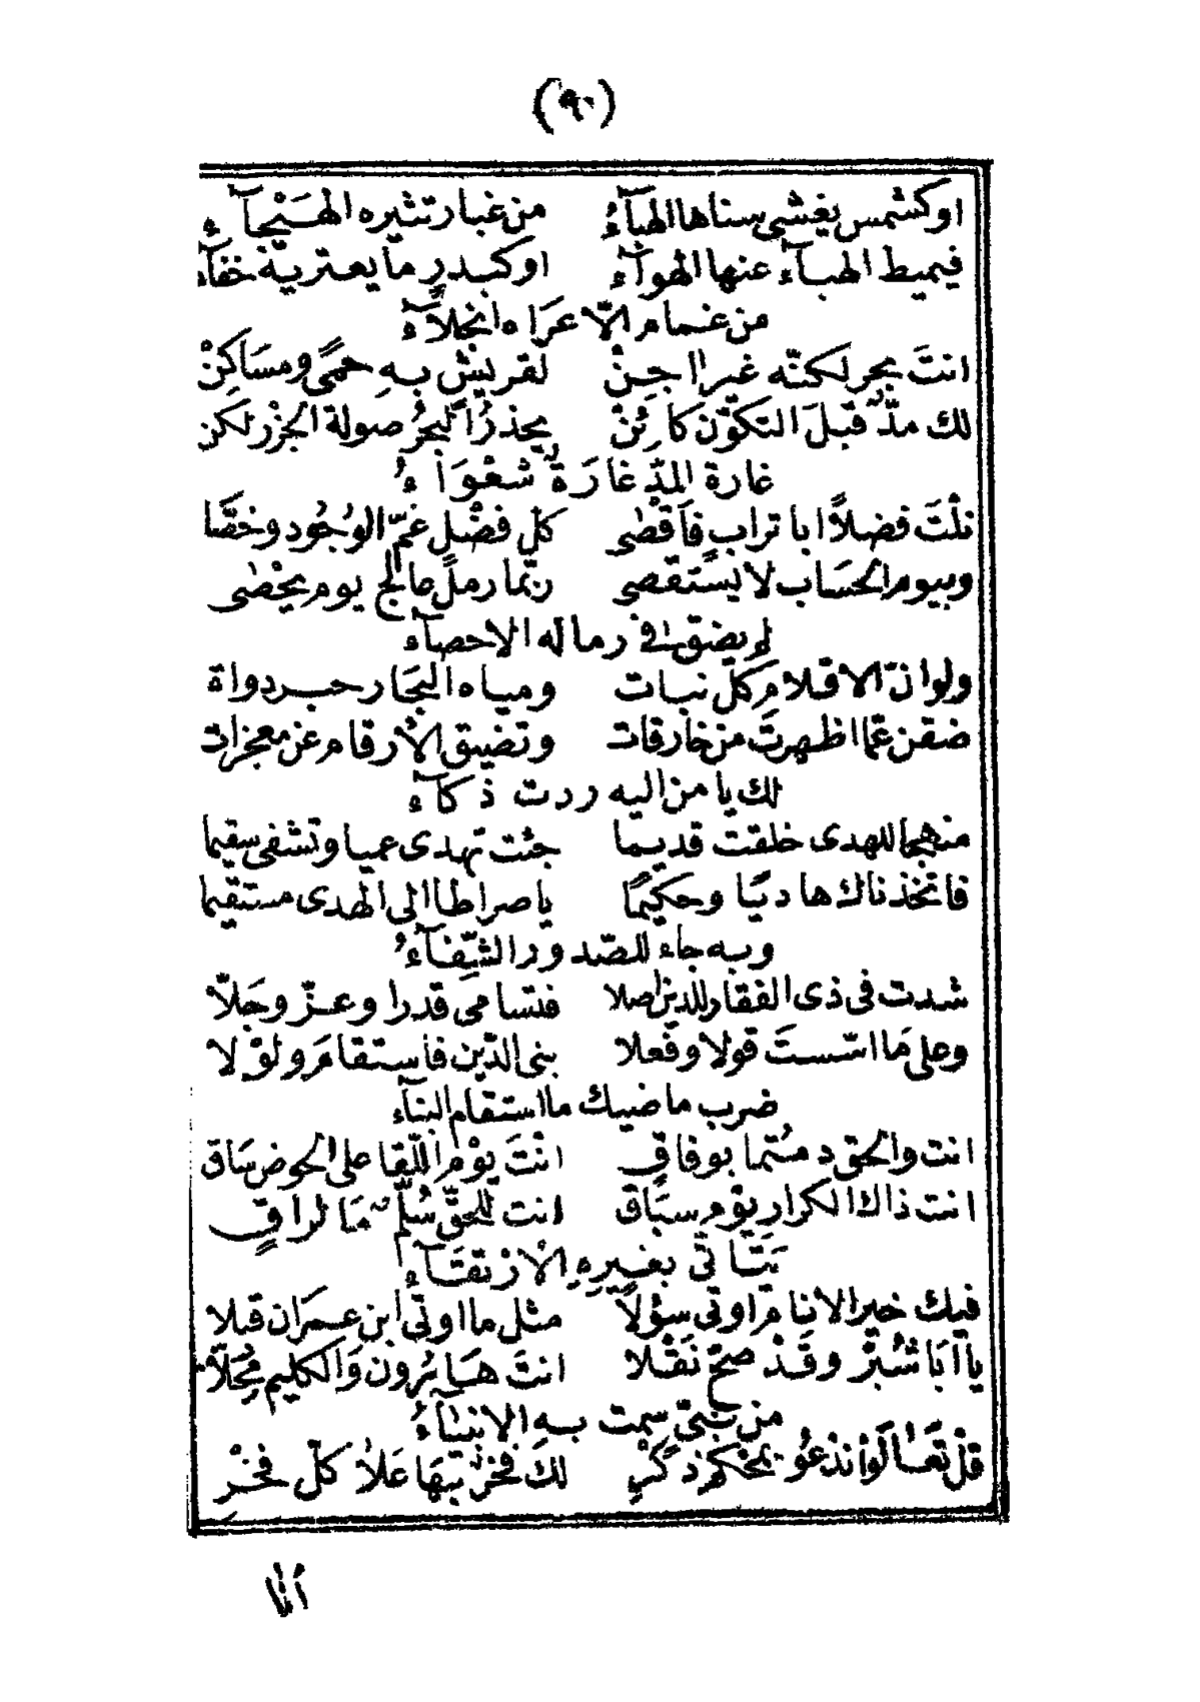 (٩٠)
او كشمس يغشى سناها الهبآءُ من غبار تثيره الهَيْجآء
فيميط الهبآء عنها الهوآء او كبدرٍ ما يعتريه خفآء
من غمام الّا عَرَاه انجلآء
انتَ بحر لكنّه غير اجِنْ لقريشٍ بهِ حمًى ومسَاكِنْ
لك مدٌّ قبلَ التكوّن كائِنْ يحذرُ البحرُ صولة الجزْر لكن
غارة المدّ غارَةٌ شعْوَاءُ
نلْتَ فضلاً ابا تراب فاَقْصٰى كل فضْلٍ عَمّ الوُجُود وخصَّا
وبيوم الحسَاب لا يسْتقصى ربّما رملُ عالج يوم يحْصٰى
لم يضق فى رماله الاحصآء
ولو انّ الاقلام كلّ نبات ومياه البحَار حبر دواة
ضقن عمّا اظهرتَ من خارقات وتضيق الأرقام عن معجزات
لك يا من اليه ردت ذكآء
منهجا للهدى خلقت قديما جئت تهدى عميا وتشفى سقيما
فاتخذناك هاديًا وحكيمًا يا صراطا الى الهدى مستقيما
وبه جاء للصّدور الشّفآءُ
شدت فى ذى الفقار للدين اصلا فتسامى قدرا وعزّ وجَلاّ
وعلى مَا اسّستَ قولا وفعلا بنى الدّين فاستقامَ ولوْ لا
ضرب ماضيك ما استقام البنآء
انت والحق دمُتما بوفاقٍ انْتَ يوْم اللّقا على الحوض سَاق
انت ذاك الكرار يوْم سبَاق انت للحقّ سُلّمٌ مَا لراقٍ
يَتَأتّى بغيرِهِ الْارْتقَآءُ
فيك خير الانام اوتى سؤلاً مثل ما اوتى ابن عمرَان قبلا
يا اَبَا شُبّرٍ وقَدْ صحّ نَقْلا انتَ هَارُون وَالكليم مَحَلاًّ
من نبىّ سمت به الانبيآءُ
قلْ تعَالَوْا ندْعُو بمحكم ذكْرٍ لكَ فخرٌ بهَا عَلاَ كلّ فخْرٍ